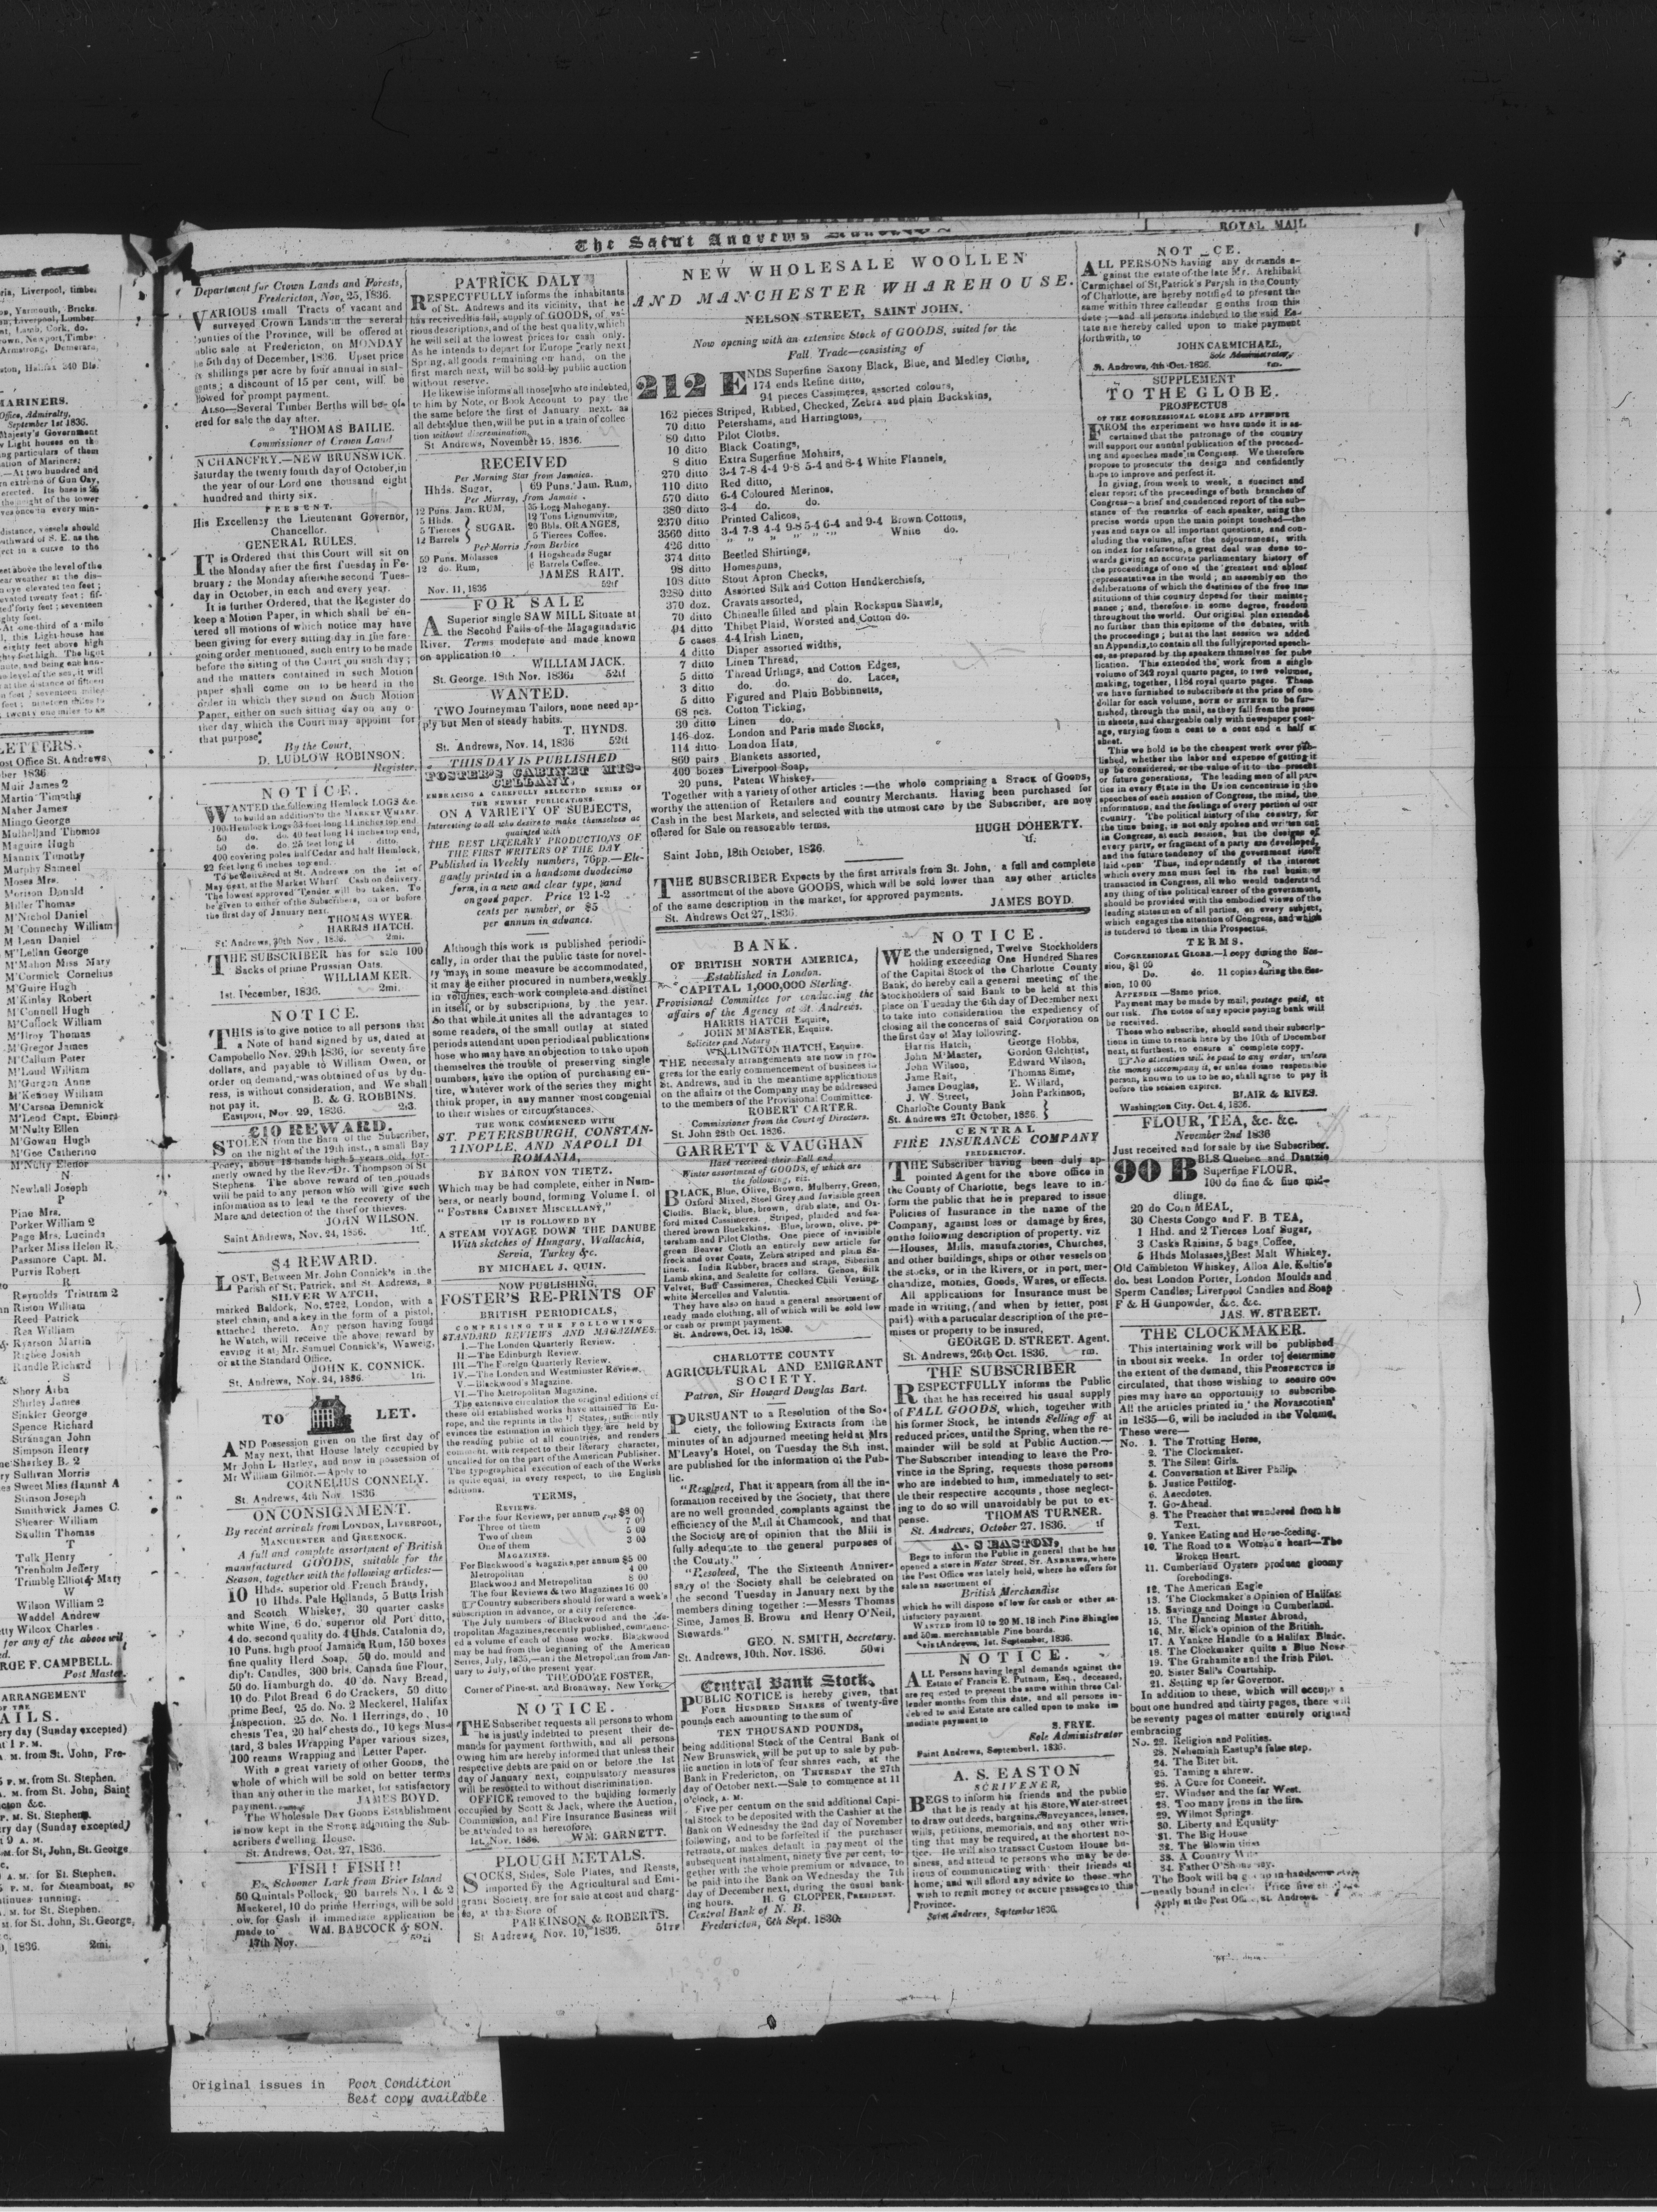 The Saint Andrews
ria, Liverpool, timber
Yarmouth, Bricks.
Liverpool, Lumber.
Lamb, Cork, do.
Newport, Timber
Armstrong, Demerara,
ston, Halifax 240 Bls.
MARINERS.
Office, Admiralty,
September 1st 1836.
Majesty's Government
Light houses on the
ng particulars of them
ation of Mariners;
At two hundred and
n extreme of Gun Cay,
erected. Its base is
the height of the tower
ves once in every min-
distance, vessels should
uthward of S. E. as the
ect in a curve to the
eet above the level of the
ear weather at the dis-
n eye elevated ten feet;
evated twenty feet; fif-
ted forty feet; seventeen
ghty feet.
At one third of a mile
l, this Light-house has
eighty feet above high
LETTERS.
ost Office St. Andrews
ber 1836
Muir James 2
Martin Timothy
Maher James
Mingo George
Mulholland Thomas
Maguire Hugh
Mannix Timothy
Murphy Sameel
Moses Mrs.
Morison Donald
Miller Thomas
M'Nichol Daniel
M'Connechy William
M Lean Daniel
M'Lellan George
M'Mahon Miss Mary
M'Cormick Cornelius
M'Guire Hugh
M'Kinlay Robert
M'Connell Hugh
M'Cullock William
M'Ilroy Thomas
M'Gregor James
M'Callum Peter
M'Loud William
M'Gurgan Anne
M'Kenney William
M'Carsea Demnick
M'Leod Capt. Ebinzr
M'Nulty Ellen
M'Gowan Hugh
M'Gee Catherine
M'Nulty Elenor
N
Newhall Joseph
P
Pine Mrs.
Porker William 2
Page Mrs. Lucinda
Parker Miss Helen R.
Passmore Capt. M.
Purvis Robert
R
Reynolds Tristram 2
Riston William
Reed Patrick
Rea William
Ryarson Martin
Rigbee Josiah
Rundle Richard
S
Shory Asba
Shirley James
Sinkler George
Spence Richard
Stranagan John
Simpson Henry
Sharkey B. 2
Sullivan Morris
Sweet Miss Hannah A
Stinson Joseph
Smithwick James C.
Shearer William
Scullin Thomas
T
Tulk Henry
Trenholm Jeffery
Trimble Elliot & Mary
W
Wilson William 2
Waddel Andrew
Wilcox Charles
for any of the above will
RGE F. CAMPBELL.
Post Master.
ARRANGEMENT
OF THE
AILS.
ry day (Sunday excepted)
at 1 P. M.
A. M. from St. John, Fre-
P. M. from St. Stephen.
A. M. from St. John, Saint
cton &c.
P. M. St. Stephen.
ry day (Sunday excepted)
9 A. M.
M. for St, John, St. George
A. M. for St. Stephen.
P. M. for Steamboat, so
tinues running.
M. for St. Stephen.
M. for St. John, St. George,
1836. 2mi.
Department for Crown Lands and Forests,
Fredericton, Nov, 25, 1836.
VARIOUS small Tracts of vacant and
surveyed Crown Lands in the several
Counties of the Province, will be offered at
ublic sale at Fredericton, on MONDAY
he 5th day of December, 1836. Upset price
shillings per acre by four annual in stal-
ents; a discount of 15 per cent, will be
llowed for prompt payment.
ALSO—Several Timber Berths will be of-
ered for sale the day after.
THOMAS BAILIE.
Commissioner of Crown Land
N CHANCERY.—NEW BRUNSWICK.
Saturday the twenty fourth day of October, in
the year of our Lord one thousand eight
hundred and thirty six.
PRESENT.
His Excellency the Lieutenant Governor,
Chancellor.
GENERAL RULES.
IT is Ordered that this Court will sit on
the Monday after the first Tuesday in Fe-
bruary; the Monday after the second Tues-
day in October, in each and every year.
It is further Ordered, that the Register do
keep a Motion Paper, in which shall be en-
tered all motions of which notice may have
been giving for every sitting day in the fore-
going order mentioned, such entry to be made
before the sitting of the Court on such day;
and the matters contained in such Motion
paper shall come on to be heard in the
order in which they stand on Such Motion
Paper, either on such sitting day on any o-
ther day which the Court may appoint for
that purpose.
By the Court,
D. LUDLOW ROBINSON.
Register.
NOTICE.
WANTED the following Hemlock LOGS &c.
to build an addition to the MARKET WHARF.
100 Hemlock Logs 33 feet long 14 inches top end.
50 do. do. 40 feet long 14 inches top end,
50 do. do. 25 feet long 14 ditto.
400 covering poles half Cedar and half Hemlock,
22 feet long 6 inches top end.
To be delivered at St. Andrews on the 1st of
May next, at the Market Wharf. Cash on delivery.
The lowest approved Tender will be taken. To
be given to either of the Subscribers, on or before
the first day of January next.
THOMAS WYER.
HARRIS HATCH.
St. Andrews, 30th Nov, 1836. 2mi.
THE SUBSCRIBER has for sale 100
Sacks of prime Prussian Oats.
WILLIAM KER.
1st. December, 1836. 2mi.
NOTICE.
THIS is to give notice to all persons that
a Note of hand signed by us, dated at
Campobello Nov. 29th 1836, for seventy five
dollars, and payable to William Owen, or
order on demand, was obtained of us by du-
ress, is without consideration, and We shall
not pay it. B. & G. ROBBINS.
Eastport, Nov. 29, 1836. 2i3.
£10 REWARD.
STOLEN from the Barn of the Subscriber,
on the night of the 19th inst., a small Bay
Poney, about 13 hands high 5 years old, for-
merly owned by the Rev. Dr. Thompson of St
Stephens. The above reward of ten pounds
will be paid to any person who will give such
information as to lead to the recovery of the
Mare and detection of the thief or thieves.
JOHN WILSON.
Saint Andrews, Nov. 24, 1836. 1tf.
$4 REWARD.
LOST, Between Mr. John Connick's in the
Parish of St. Patrick, and St. Andrews, a
SILVER WATCH,
marked Baldock, No. 2722, London, with a
steel chain, and a key in the form of a pistol,
attached thereto. Any person having found
he Watch, will receive the above reward by
eaving it at Mr. Samuel Connick's, Waweig,
or at the Standard Office.
JOHN K. CONNICK.
St. Andrews, Nov. 24, 1836. 1n.
TO LET.
AND Possession given on the first day of
May next, that House lately occupied by
Mr John L Harley, and now in possession of
Mr William Gilmor.—Apply to
CORNELIUS CONNELY.
St. Andrews, 4th Nov 1836
ON CONSIGNMENT.
By recent arrivals from LONDON, LIVERPOOL,
MANCHESTER and GREENOCK.
A full and complete assortment of British
manufactured GOODS, suitable for the
Season, together with the following articles:—
10 Hhds. superior old French Brandy,
10 Hhds. Pale Hollands, 5 Butts Irish
and Scotch Whiskey, 30 quarter casks
white Wine, 6 do. superior old Port ditto,
4 do. second quality do. 4 Uhds. Catalonia do,
10 Puns. high proof Jamaica Rum, 150 boxes
fine quality Herd Soap, 50 do. mould and
dip't: Candles, 300 brls. Canada fine Flour,
50 do. Hamburgh do. 40 do. Navy Bread,
10 do. Pilot Bread 6 do Crackers, 50 ditto
prime Beef, 25 do. No. 2 Meckerel, Halifax
Inspection. 25 do. No. 1 Herrings, do, 10
chests Tea, 20 half chests do., 10 kegs Mus-
tard, 3 bales Wrapping Paper various sizes,
100 reams Wrapping and Letter Paper.
With a great variety of other Goods, the
whole of which will be sold on better terms
than any other in the market, for satisfactory
payment. JAMES BOYD.
The Wholesale DRY GOODS Establishment
is now kept in the STORE adjoining the Sub-
scribers dwelling House.
St. Andrews, Oct. 27, 1836.
FISH! FISH!!
Ex. Schooner Lark from Brier Island
50 Quintals Pollock, 20 barrels No. 1 & 2
Mackerel, 10 do prime Herrings, will be sold
ow for Cash if immediate application be
made to WM. BABCOCK & SON.
17th Nov.
PATRICK DALY
RESPECTFULLY informs the inhabitants
of St. Andrews and its vicinity, that he
has received his fall, supply of GOODS, of va-
rious descriptions, and of the best quality, which
he will sell at the lowest prices for cash only.
As he intends to depart for Europe early next
Spring, all goods remaining on hand, on the
first march next, will be sold by public auction
without reserve.
He likewise informs all those who are indebted,
to him by Note, or Book Account to pay the
the same before the first of January next. as
all debts due then, will be put in a train of collec
tion without discremination.
St. Andrews, November 15, 1836.
RECEIVED
Per Morning Star from Jamaica.
Hhds. Sugar, 69 Puns. Jam. Rum,
Per Murray, from Jamaic.
12 Puns. Jam. RUM, 35 Logs Mahogany.
5 Hhds. 12 Tons Lignumvitæ,
5 Tierces SUGAR. 20 Bbls. ORANGES,
12 Barrels 5 Tierces Coffee.
Per Morris from Berbice
59 Puns. Molasses 4 Hogsheads Sugar
12 do. Rum, 6 Barrels Coffee.
JAMES RAIT.
Nov. 11, 1836 52tf
FOR SALE
A Superior single SAW MILL Situate at
the Second Falls of the Magaguadavic
River. Terms moderate and made known
on application to
WILLIAM JACK.
St. George. 18th Nov. 1836. 52tf
WANTED.
TWO Journeyman Tailors, none need ap-
ply but Men of steady habits.
T. HYNDS.
St. Andrews, Nov. 14, 1836 52tf
THIS DAY IS PUBLISHED
FOSTER'S CABINET MIS-
CELLANY.
EMBRACING A CAREFULLY SELECTED SERIES OF
THE NEWEST PUBLICATIONS.
ON A VARIETY OF SUBJECTS,
Interesting to all who desire to make themselves ac
quainted with
THE BEST LITERARY PRODUCTIONS OF
THE FIRST WRITERS OF THE DAY.
Published in Weekly numbers, 76pp.—Ele-
gantly printed in a handsome duodecimo
form, in a new and clear type, and
on good paper. Price 12 1-2
cents per number, or $5
per annum in advance.
Although this work is published periodi-
cally, in order that the public taste for novel-
ty may, in some measure be accommodated,
it may be either procured in numbers, weekly
in volumes, each work complete and distinct
in itself, or by subscriptions, by the year.
So that while it unites all the advantages to
some readers, of the small outlay at stated
periods attendant upon periodical publications
hose who may have an objection to take upon
themselves the trouble of preserving single
numbers, have the option of purchasing en-
tire, whatever work of the series they might
think proper, in any manner most congenial
to their wishes or circumstances.
THE WORK COMMENCED WITH
ST. PETERSBURGH, CONSTAN-
TINOPLE, AND NAPOLI DI
ROMANIA,
BY BARON VON TIETZ.
Which may be had complete, either in Num-
bers, or nearly bound, forming Volume I. of
"FOSTERS CABINET MISCELLANY,"
IT IS FOLLOWED BY
A STEAM VOYAGE DOWN THE DANUBE
With sketches of Hungary, Wallachia,
Servia, Turkey &c.
BY MICHAEL J. QUIN.
NOW PUBLISHING,
FOSTER'S RE-PRINTS OF
BRITISH PERIODICALS,
COMPRISING THE FOLLOWING
STANDARD REVIEWS AND MAGAZINES.
I.—The London Quarterly Review.
II.—The Edinburgh Review.
III.—The Foreign Quarterly Review.
IV.—The London and Westminster Review.
V.—Blackwood's Magazine.
VI.—The Metropolitan Magazine.
The extensive circulation the original editions of
these old established works have attained in Eu-
rope, and the reprints in the U States, sufficiently
evinces the estimation in which they are held by
the reading public of all countries, and renders
comment, with respect to their literary character,
uncalled for on the part of the American Publisher.
The typographical execution of each of the Works
is quite equal, in every respect, to the English
editions.
TERMS,
REVIEWS.
For the four Reviews, per annum $8 00
Three of them 7 00
Two of them 5 00
One of them 3 00
MAGAZINES.
For Blackwood's Magazine, per annum $5 00
Metropolitan 4 00
Blackwood and Metropolitan 8 00
The four Reviews & two Magazines 16 00
Country subscribers should forward a week's
subscription in advance, or a city reference.
The July numbers of Blackwood and the Me-
tropolitan Magazines, recently published, commenc-
ed a volume of each of those works. Blackwood
may be had from the beginning of the American
Series, July, 1835,—and the Metropolitan from Jan-
uary to July, of the present year.
THEODORE FOSTER,
Corner of Pine-st. and Broadway, New York.
NOTICE.
THE Subscriber requests all persons to whom
he is justly indebted to present their de-
mands for payment forthwith, and all persons
owing him are hereby informed that unless their
respective debts are paid on or before the 1st
day of January next, compulsatory measures
will be resorted to without discrimination.
OFFICE removed to the building formerly
occupied by Scott & Jack, where the Auction,
Commission, and Fire Insurance Business will
be attended to as heretofore.
1st. Nov. 1836. WM. GARNETT.
PLOUGH METALS.
SOCKS, Sides, Sole Plates, and Reasts,
imported by the Agricultural and Emi-
grant Society, are for sale at cost and charg-
es, at the Store of
PARKINSON & ROBERTS.
St Andrews, Nov. 10, 1836. 51tf
NEW WHOLESALE WOOLLEN
AND MANCHESTER WHAREHOUSE.
NELSON STREET, SAINT JOHN.
Now opening with an extensive Stock of GOODS, suited for the
Fall Trade—consisting of
212 ENDS Superfine Saxony Black, Blue, and Medley Cloths,
174 ends Refine ditto,
94 pieces Cassimeres, assorted colours,
162 pieces Striped, Ribbed, Checked, Zebra and plain Buckskins,
70 ditto Petershams, and Harringtons,
80 ditto Pilot Cloths.
10 ditto Black Coatings,
8 ditto Extra Superfine Mohairs,
270 ditto 3-4 7-8 4-4 9-8 5-4 and 8-4 White Flannels,
110 ditto Red ditto,
570 ditto 6-4 Coloured Merinos,
380 ditto 3-4 do. do.
2370 ditto Printed Calicos,
3560 ditto 3-4 7-8 4-4 9-8 5-4 6-4 and 9-4 Brown Cottons,
426 ditto " " " " " " White do.
374 ditto Beetled Shirtings,
98 ditto Homespuns,
108 ditto Stout Apron Checks,
3280 ditto Assorted Silk and Cotton Handkerchiefs,
370 doz. Cravats assorted,
70 ditto Chinealle filled and plain Rockspun Shawls,
494 ditto Thibet Plaid, Worsted and Cotton do.
5 cases 4-4 Irish Linen,
4 ditto Diaper assorted widths,
7 ditto Linen Thread,
5 ditto Thread Urlings, and Cotton Edges,
3 ditto do. do. do. Laces,
5 ditto Figured and Plain Bobbinnetts,
68 pcs. Cotton Ticking,
30 ditto Linen do.
146 doz. London and Paris made Stocks,
114 ditto London Hats,
860 pairs Blankets assorted,
400 boxes Liverpool Soap,
20 puns. Patent Whiskey.
Together with a variety of other articles:—the whole comprising a STOCK of GOODS,
worthy the attention of Retailers and country Merchants. Having been purchased for
Cash in the best Markets, and selected with the utmost care by the Subscriber, are now
offered for Sale on reasonable terms.
HUGH DOHERTY.
Saint John, 18th October, 1836. tf.
THE SUBSCRIBER Expects by the first arrivals from St. John, a full and complete
assortment of the above GOODS, which will be sold lower than any other articles
of the same description in the market, for approved payments.
St. Andrews Oct 27, 1836. JAMES BOYD.
BANK.
OF BRITISH NORTH AMERICA,
Established in London.
CAPITAL 1,000,000 Sterling.
Provisional Committee for conducting the
affairs of the Agency at St. Andrews.
HARRIS HATCH Esquire,
JOHN M'MASTER, Esquire.
Solicitor and Notary
WELLINGTON HATCH, Esquire.
THE necessary arrangements are now in pro-
gress for the early commencement of business in
St. Andrews, and in the meantime applications
on the affairs of the Company may be addressed
to the members of the Provisional Committee.
ROBERT CARTER.
Commissioner from the Court of Directors.
St. John 28th Oct. 1836.
GARRETT & VAUGHAN
Have received their Fall and
Winter assortment of GOODS, of which are
the following, viz.
BLACK, Blue, Olive, Brown, Mulberry, Green,
Oxford Mixed, Steel Grey, and Invisible green
Cloths. Black, blue, brown, drab slate, and Ox-
ford mixed Cassimeres. Striped, plaided and fea-
thered brown Buckskins. Blue, brown, olive, pe-
tersham and Pilot Cloths. One piece of invisible
green Beaver Cloth an entirely new article for
frock and over Coats, Zebra striped and plain Sa-
tinets. India Rubber, braces and straps, Siberian
Lamb skins, and Sealette for collars. Genoa, Silk
Velvet, Buff Cassimeres, Checked Chili Vesting,
white Mercelles and Valentia.
They have also on haud a general assortment of
ready made clothing, all of which will be sold low
or cash or prompt payment.
St. Andrews, Oct. 13, 1836.
CHARLOTTE COUNTY
AGRICULTURAL AND EMIGRANT
SOCIETY.
Patron, Sir Howard Douglas Bart.
PURSUANT to a Resolution of the So-
ciety, the following Extracts from the
minutes of an adjourned meeting held at Mrs
M'Leavy's Hotel, on Tuesday the 8th inst.
are published for the information of the Pub-
lic.
"Resolved, That it appears from all the in-
formation received by the Society, that there
are no well grounded complants against the
efficiency of the Mill at Chamcook, and that
the Society are of opinion that the Mill is
fully adequate to the general purposes of
the County."
"Resolved, The the Sixteenth Anniver-
sary of the Society shall be celebrated on
the second Tuesday in January next by the
members dining together:—Messrs Thomas
Sime, James B. Brown and Henry O'Neil,
Stewards."
GEO. N. SMITH, Secretary.
St. Andrews, 10th. Nov. 1836. 50wi
Central Bank Stock.
PUBLIC NOTICE is hereby given, that
FOUR HUNDRED SHARES of twenty-five
pounds each amounting to the sum of
TEN THOUSAND POUNDS,
being additional Stock of the Central Bank of
New Brunswick, will be put up to sale by pub-
lic auction in lots of four shares each, at the
Bank in Fredericton, on THURSDAY the 27th
day of October next.—Sale to commence at 11
o'clock, A. M.
Five per centum on the said additional Capi-
tal Stock to be deposited with the Cashier at the
Bank on Wednesday the 2nd day of November
following, and to be forfeited if the purchaser
retracts, or makes default in payment of the
subsequent instalment, ninety five per cent, to-
gether with the whole premium or advance, to
be paid into the Bank on Wednesday the 7th
day of December next, during the usual bank-
ing hours. H. G CLOPPER, PRESIDENT.
Central Bank of N. B.
Fredericton, 6th Sept. 1836.
NOTICE.
WE the undersigned, Twelve Stockholders
holding exceeding One Hundred Shares
of the Capital Stock of the Charlotte County
Bank, do hereby call a general meeting of the
Stockholders of said Bank to be held at this
place on Tuesday the 6th day of December next
to take into consideration the expediency of
closing all the concerns of said Corporation on
the first day of May following.
Harris Hatch, George Hobbs,
John M'Master, Gordon Gilchrist,
John Wilson, Edward Wilson,
Jame Rait, Thomas Sime,
James Douglas, E. Willard,
J. W. Street, John Parkinson,
Charlotte County Bank
St. Andrews 27t October, 1836.
CENTRAL
FIRE INSURANCE COMPANY
FREDERICTON.
THE Subscriber having been duly ap-
pointed Agent for the above office in
the County of Charlotte, begs leave to in-
form the public that he is prepared to issue
Policies of Insurance in the name of the
Company, against loss or damage by fires,
on the following description of property. viz
—Houses, Mills, manufactories, Churches,
and other buildings, ships or other vessels on
the stocks, or in the Rivers, or in port, mer-
chandize, monies, Goods, Wares, or effects.
All applications for Insurance must be
made in writing, (and when by letter, post
paid) with a particular description of the pre-
mises or property to be insured,
GEORGE D. STREET. Agent.
St. Andrews, 26th Oct. 1836. rm.
THE SUBSCRIBER
RESPECTFULLY informs the Public
that he has received his usual supply
of FALL GOODS, which, together with
his former Stock, he intends Selling off at
reduced prices, until the Spring, when the re-
mainder will be sold at Public Auction.—
The Subscriber intending to leave the Pro-
vince in the Spring, requests those persons
who are indebted to him, immediately to set-
tle their respective accounts, those neglect-
ing to do so will unavoidably be put to ex-
pense. THOMAS TURNER.
St. Andrews, October 27. 1836. tf
A. S EASTON,
Begs to inform the Public in general that he has
opened a store in Water Street, ST. ANDREWS, where
the Post Office was lately held, where he offers for
sale an assortment of
British Merchandise
which he will dispose of low for cash or other sa-
tisfactory payment.
WANTED from 10 to 20 M. 18 inch Pine Shingles
and 50m. merchantable Pine boards.
Saint Andrews, 1st. September, 1836.
NOTICE.
ALL Persons having legal demands against the
Estate of Francis E. Putnam, Esq., deceased,
are req ested to present the same within three Cal-
lender months from this date, and all persons in-
debted to said Estate are called upon to make im
mediate payment to
S. FRYE.
Sole Administrator
Saint Andrews, September 1. 1836.
A. S. EASTON
SCRIVENER,
BEGS to inform his friends and the public
that he is ready at his Store, Water-street
to draw out deeds, bargains, conveyances, leases,
wills, petitions, memorials, and any other wri-
ting that may be required, at the shortest no-
tice. He will also transact Custom House bu-
siness, and attend to persons who may be de-
sirous of communicating with their friends at
home, and will afford any advice to those who
wish to remit money or secure passages to this
Province.
Saint Andrews, September 1836.
ROYAL MAIL
NOT CE.
ALL PERSONS having any demands a-
gainst the estate of the late Mr. Archibald
Carmichael of St. Patrick's Parish in the County
of Charlotte, are hereby notified to present the
same within three callendar months from this
date;—and all persons indebted to the said Es-
tate are hereby called upon to make payment
forthwith, to
JOHN CARMICHAEL,
Sole Administrator,
St. Andrews, 4th Oct. 1836.
SUPPLEMENT
TO THE GLOBE.
PROSPECTUS
OF THE CONGRESSIONAL GLOBE AND APPENDIX
FROM the experiment we have made it is as-
certained that the patronage of the country
will support our annual publication of the proceed-
ing and speeches made in Congress. We therefore
propose to prosecute the design and confidently
hope to improve and perfect it.
In giving, from week to week, a succinct and
clear report of the proceedings of both branches of
Congress—a brief and condensed report of the sub-
stance of the remarks of each speaker, using the
precise words upon the main poinpt touched—the
yeas and nays on all important questions, and con-
cluding the volume, after the adjournment, with
on index for reference, a great deal was done to-
wards giving an accurate parliamentary history of
the proceedings of one of the greatest and ablest
representatives in the world; an assembly on the
deliberations of which the destinies of the free ins
stitutions of this country depend for their mainte-
nance; and, therefore in some degree, freedom
throughout the world. Our original plan extended
no further than this epitome of the debates, with
the proceedings; but at the last session we added
an Appendix, to contain all the fully reported speech-
es, as prepared by the speakers themselves for pub-
lication. This extended the work from a single
volume of 342 royal quarto pages, to two volumes,
making, together, 1184 royal quarto pages. These
we have furnished to subscribers at the price of one
dollar for each volume, BOTH OR EITHER to be fur-
nished, through the mail, as they fall from the press
in sheets, and chargeable only with newspaper post-
age, varying from a cent to a cent and a half a
sheet.
This we hold to be the cheapest work ever pub-
lished, whether the labor and expense of getting it
up be considered, or the value of it to the present
or future generations. The leading men of all par-
ties in every State in the Union concentrate in the
speeches of each session of Congress, the mind, the
information, and the feelings of every portion of our
country. The political history of the country, for
the time being, is not only spoken and written out
in Congress, at each session, but the designs of
every party, or fragment of a party are developed,
and the future tendency of the government itself
laid open. Thus, independently of the interest
which every man must feel in the real business
transacted in Congress, all who would understand
any thing of the political career of the government,
should be provided with the embodied views of the
leading statesmen of all parties, on every subject,
which engages the attention of Congress, and which
is tendered to them in this Prospectus.
TERMS.
CONGRESSIONAL GLOBE.—1 copy during the Ses-
sion, $1 00
Do. do. 11 copies during the Ses-
sion, 10 00
APPENDIX—Same price.
Payment may be made by mail, postage paid, at
our risk. The notes of any specie paying bank will
be received.
Those who subscribe, should send their subscrip-
tions in time to reach here by the 10th of December
next, at furthest, to ensure a complete copy.
No attention will be paid to any order, unless
the money accompany it, or unless some responsible
person, known to us to be so, shall agree to pay it
before the session expires.
BLAIR & RIVES.
Washington City. Oct. 4, 1836.
FLOUR, TEA, &c. &c.
November 2nd 1836
Just received and for sale by the Subscriber.
90 BBLS Quebec and Dantzic
Superfine FLOUR,
100 do fine & fine mid-
dlings.
20 do Corn MEAL,
30 Chests Congo and F. B. TEA,
1 Hhd. and 2 Tierces Loaf Sugar,
3 Casks Raisins, 5 bags Coffee,
5 Hhds Molasses, Best Malt Whiskey.
Old Cambleton Whiskey, Alloa Ale. Keltie's
do. best London Porter, London Moulds and
Sperm Candles; Liverpool Candles and Soap
F & H Gunpowder, &c. &c.
JAS. W. STREET.
THE CLOCKMAKER.
This intertaining work will be published
in about six weeks. In order to determine
the extent of the demand, this PROSPECTUS is
circulated, that those wishing to secure co-
pies may have an opportunity to subscribe
All the articles printed in the Novascotian
in 1835—6, will be included in the Volume.
These were—
No. 1. The Trotting Horse,
2. The Clockmaker.
3. The Silent Girls.
4. Conversation at River Philip.
5. Justice Pettilog.
6. Anecdotes.
7. Go-Ahead.
8. The Preacher that wandered from his
Text.
9. Yankee Eating and Horse-feeding.
10. The Road to a Woman's heart—The
Broken Heart.
11. Cumberland Oysters produce gloomy
forebodings.
12. The American Eagle
13. The Clockmaker's Opinion of Halifax
15. Sayings and Doings in Cumberland.
15. The Dancing Master Abroad,
16. Mr. Slick's opinion of the British.
17. A Yankee Handle to a Halifax Blade.
18. The Clockmaker quilts a Blue Nose
19. The Grahamite and the Irish Pilot.
20. Sister Sall's Courtship.
21. Setting up for Governor.
In addition to these, which will occupy a
bout one hundred and thirty pages, there will
be seventy pages of matter entirely original
embracing
No. 22. Religion and Politics.
23. Nehemiah Eastup's false step.
24. The Biter bit.
25. Taming a shrew.
26. A Cure for Conceit.
27. Windsor and the far West.
28. Too many Irons in the fire.
29. Wilmot Springs.
30. Liberty and Equality.
31. The Big House
32. The Blowin time
33. A Country
34. Father O'Shaughnessy.
The Book will be got up in handsome
—neatly bound in cloth. Price five
Apply at the Post Office, St. Andrews.
Original issues in Poor Condition
Best copy available